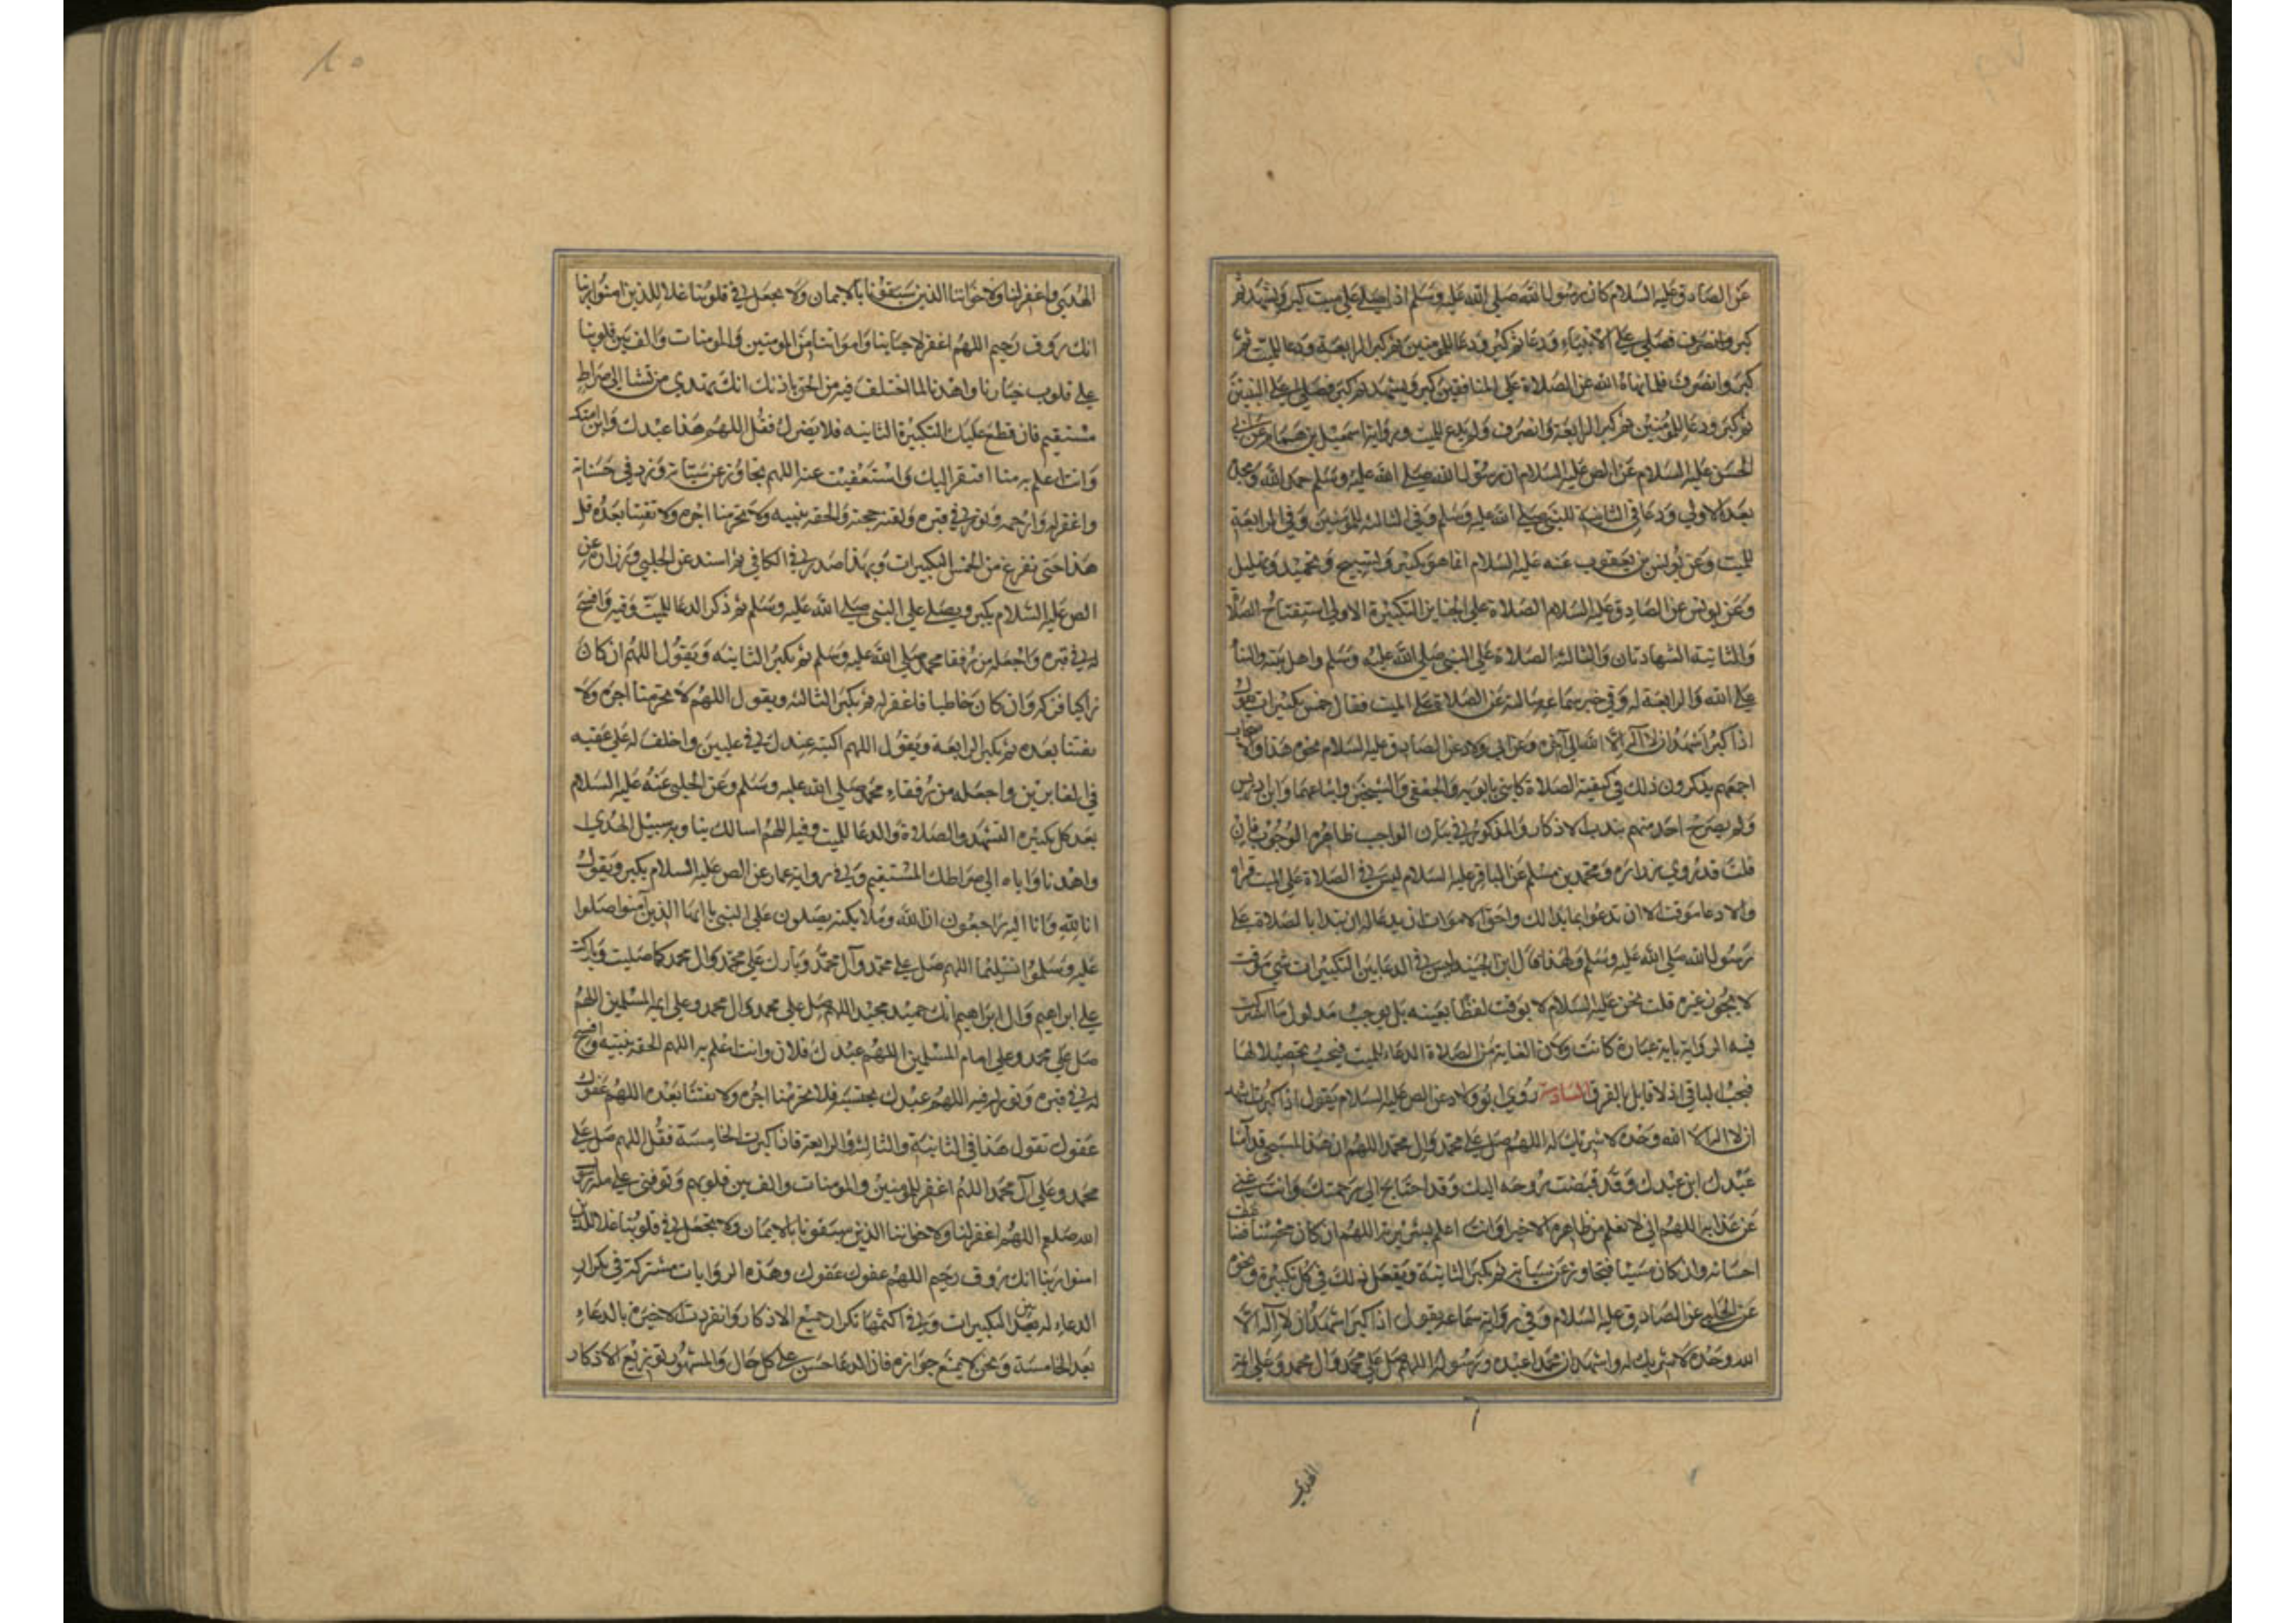 عن الصادق عليه السلام كان رسول الله صلى الله عليه وسلم اذا صلى على ميت كبر وتشهد ثم
كبر وانصرف فصلى على الانبياء ودعا ثم كبر ودعا للمومنين ثم كبر الرابعة ودعا للميت ثم
كبر وانصرف فلما نهاه الله عن الصلاة على المنافقين كبر وتشهد ثم كبر فصلى على النبيين
ثم كبر ودعا للمؤمنين ثم كبر الرابعة وانصرف ولم يدع للميت وبرواية اسمعيل بن همام عن ابي
الحسن عليه السلام عن الص عليه السلام ان رسول الله صلى الله عليه وسلم حمد الله ومجد
بعد الاولى ودعا في الثانية للنبي صلى الله عليه وسلم وفي الثالثة للمومنين وفي الرابعة
للميت وعن يونس بن يعقوب عنه عليه السلام انما هو تكبير وتسبيح وتحميد وتهليل
وعن يونس عن الصادق عليه السلام الصلاة على الجنايز التكبيرة الاولى استفتاح الصلا
والثانية الشهادتان والثالثة الصلاة على النبي صلى الله عليه وسلم واهل بيته والثنا
على الله والرابعة له وفي خبر سماعه سالته عن الصلاة على الميت فقال خمس تكبيرات يقول
اذا كبر اشهد ان لا آله الا الله الى آخره وعن ابي ولاد عن الصادق عليه السلام نحو هذا والاصحاب
اجمعهم يذكرون ذلك في كيفية الصلاة كابني بابويه والجعفي والشيخين واتباعهما وابن ادريس
ولم يصرح احد منهم بندب الاذكار والمذكور في بيان الواجب ظاهره الوجوب فان
قلت قد روي زرارة ومحمد بن مسلم عن الباقر عليه السلام ليس في الصلاة على الميت قراة
ولا دعا موقت الا ان تدعوا بما بدا لك واحق الاموات ان يدعا له ان تبدا بالصلاة على
رسول الله صلى الله عليه وسلم ولهذا قال ابن الجنيد ليس في الدعا بين التكبيرات شي موقت
لا يجوز غيره قلت نحن عليه السلام لا نوقت لفظا بعينه بل نوجب مدلول ما اشتركت
فيه الرواية باية عبارة كانت ولان الغاية من الصلاة الدعاء للميت فيجب تحصيلا لها
فيجب الباقي اذ لا قايل بالفرق السادسة روي ابو ولاد عن الص عليه السلام يقول اذا كبرت اشهد
ان لا اله الا الله وحده لا شريك له اللهم صل على محمد وال محمد اللهم ان هذا المسجى قدامنا
عبدك ابن عبدك وقد قبضت روحه اليك وقد احتاج الى رحمتك وانت غني
عن عذابه اللهم اني لا نعلم من ظاهره الا خيرا وانت اعلم بسريرته اللهم ان كان محسنا فضاعف
احسانه وان كان مسيئا فتجاوز عن سيئاته ثم يكبر الثانية ويفعل ذلك في كل تكبيرة ونحوه
عن الحلبي عن الصادق عليه السلام وفي رواية سماعه يقول اذا كبر اشهد ان لا آله الا
الله وحده لا شريك له واشهد ان محمدا عبده ورسوله اللهم صل على محمد وال محمد وعلى ايمة
الهدي
الهدى واغفر لنا ولاخواننا الذين سبقونا بالايمان ولا تجعل في قلوبنا غلا للذين امنوا ربنا
انك روف رحيم اللهم اغفر لاحيائنا وامواتنا من المومنين والمومنات والف بين قلوبنا
على قلوب خيارنا واهدنا لما اختلف فيه من الحق باذنك انك تهتدي من تشا الى صراط
مستقيم فان قطع عليك التكبيرة الثانيه فلا يضرك فقل اللهم هذا عبدك وابن امتك
وانت اعلم به منا افتقر اليك واستغنيت عنه اللهم تجاوز عن سيئاته وزد في حسناته
واغفر له وارحمه ونور له في قبره ولقنه حجته والحقه بنبيه ولا تحرمنا اجره ولا تفتنا بعده قل
هذا حتى تفرغ من الخمس التكبيرات وبهذا صدر في الكافي ثم اسند عن الحلبي وزرارة عن
الص عليه السلام يكبر ويصلي على النبي صلى الله عليه وسلم ثم ذكر الدعا للميت وفيه وافسح
له في قبره واجعله من رفقا محمد صلى الله عليه وسلم ثم يكبر الثانيه ويقول اللهم ان كان
زاكيا فزكه وان كان خاطيا فاغفر له ثم يكبر الثالثه ويقول اللهم لا تحرمنا اجره ولا
تفتنا بعده ثم يكبر الرابعة ويقول اللهم اكتبه عندك في عليين واخلف له على عقبه
في الغابرين واجعله من رفقاء محمد صلى الله عليه وسلم وعن الحلبي عنه عليه السلام
بعد كل تكبيره التشهد والصلاة والدعا للميت وفيه اللهم اسالك بنا وبه سبيل الهدى
واهدنا واياه الى صراطك المستقيم وفي رواية عمار عن الص عليه السلام يكبر ويقول
انا لله وانا اليه راجعون ان الله وملايكته يصلون على النبي يا ايها الذين آمنوا صلوا
عليه وسلموا تسليما اللهم صل على محمد وآل محمد وبارك على محمد وال محمد كما صليت وباركت
على ابراهيم وال ابراهيم انك حميد مجيد اللهم صل على محمد وال محمد وعلى ايمة المسلمين اللهم
صل على محمد وعلى امام المسلمين اللهم عبدك فلان وانت اعلم به اللهم الحقه بنبيه وافسح
له في قبره ونور له فيه اللهم عبدك فلا تحرمنا اجره ولا تفتنا بعده اللهم عفوك
عفوك تقول هذا في الثانية والثالثة والرابعة فاذا كبرت الخامسة فقل اللهم صل على
محمد وعلى آل محمد اللهم اغفر للمومنين والمومنات والف بين قلوبهم وتوفني على ملة رسول
الله صلعم اللهم اغفر لنا ولاخواننا الذين سبقونا بالايمان ولا تجعل في قلوبنا غلا للذين
امنوا ربنا انك روف رحيم اللهم عفوك عفوك وهذه الروايات مشتركة في تكرار
الدعاء له بين التكبيرات وفي اكثرها تكرار جميع الاذكار وانفردت الاخيرة بالدعاء
بعد الخامسة ونحن لا نمنع جوازه فان الدعا حسن على كل حال والمشهور توزيع الاذكار